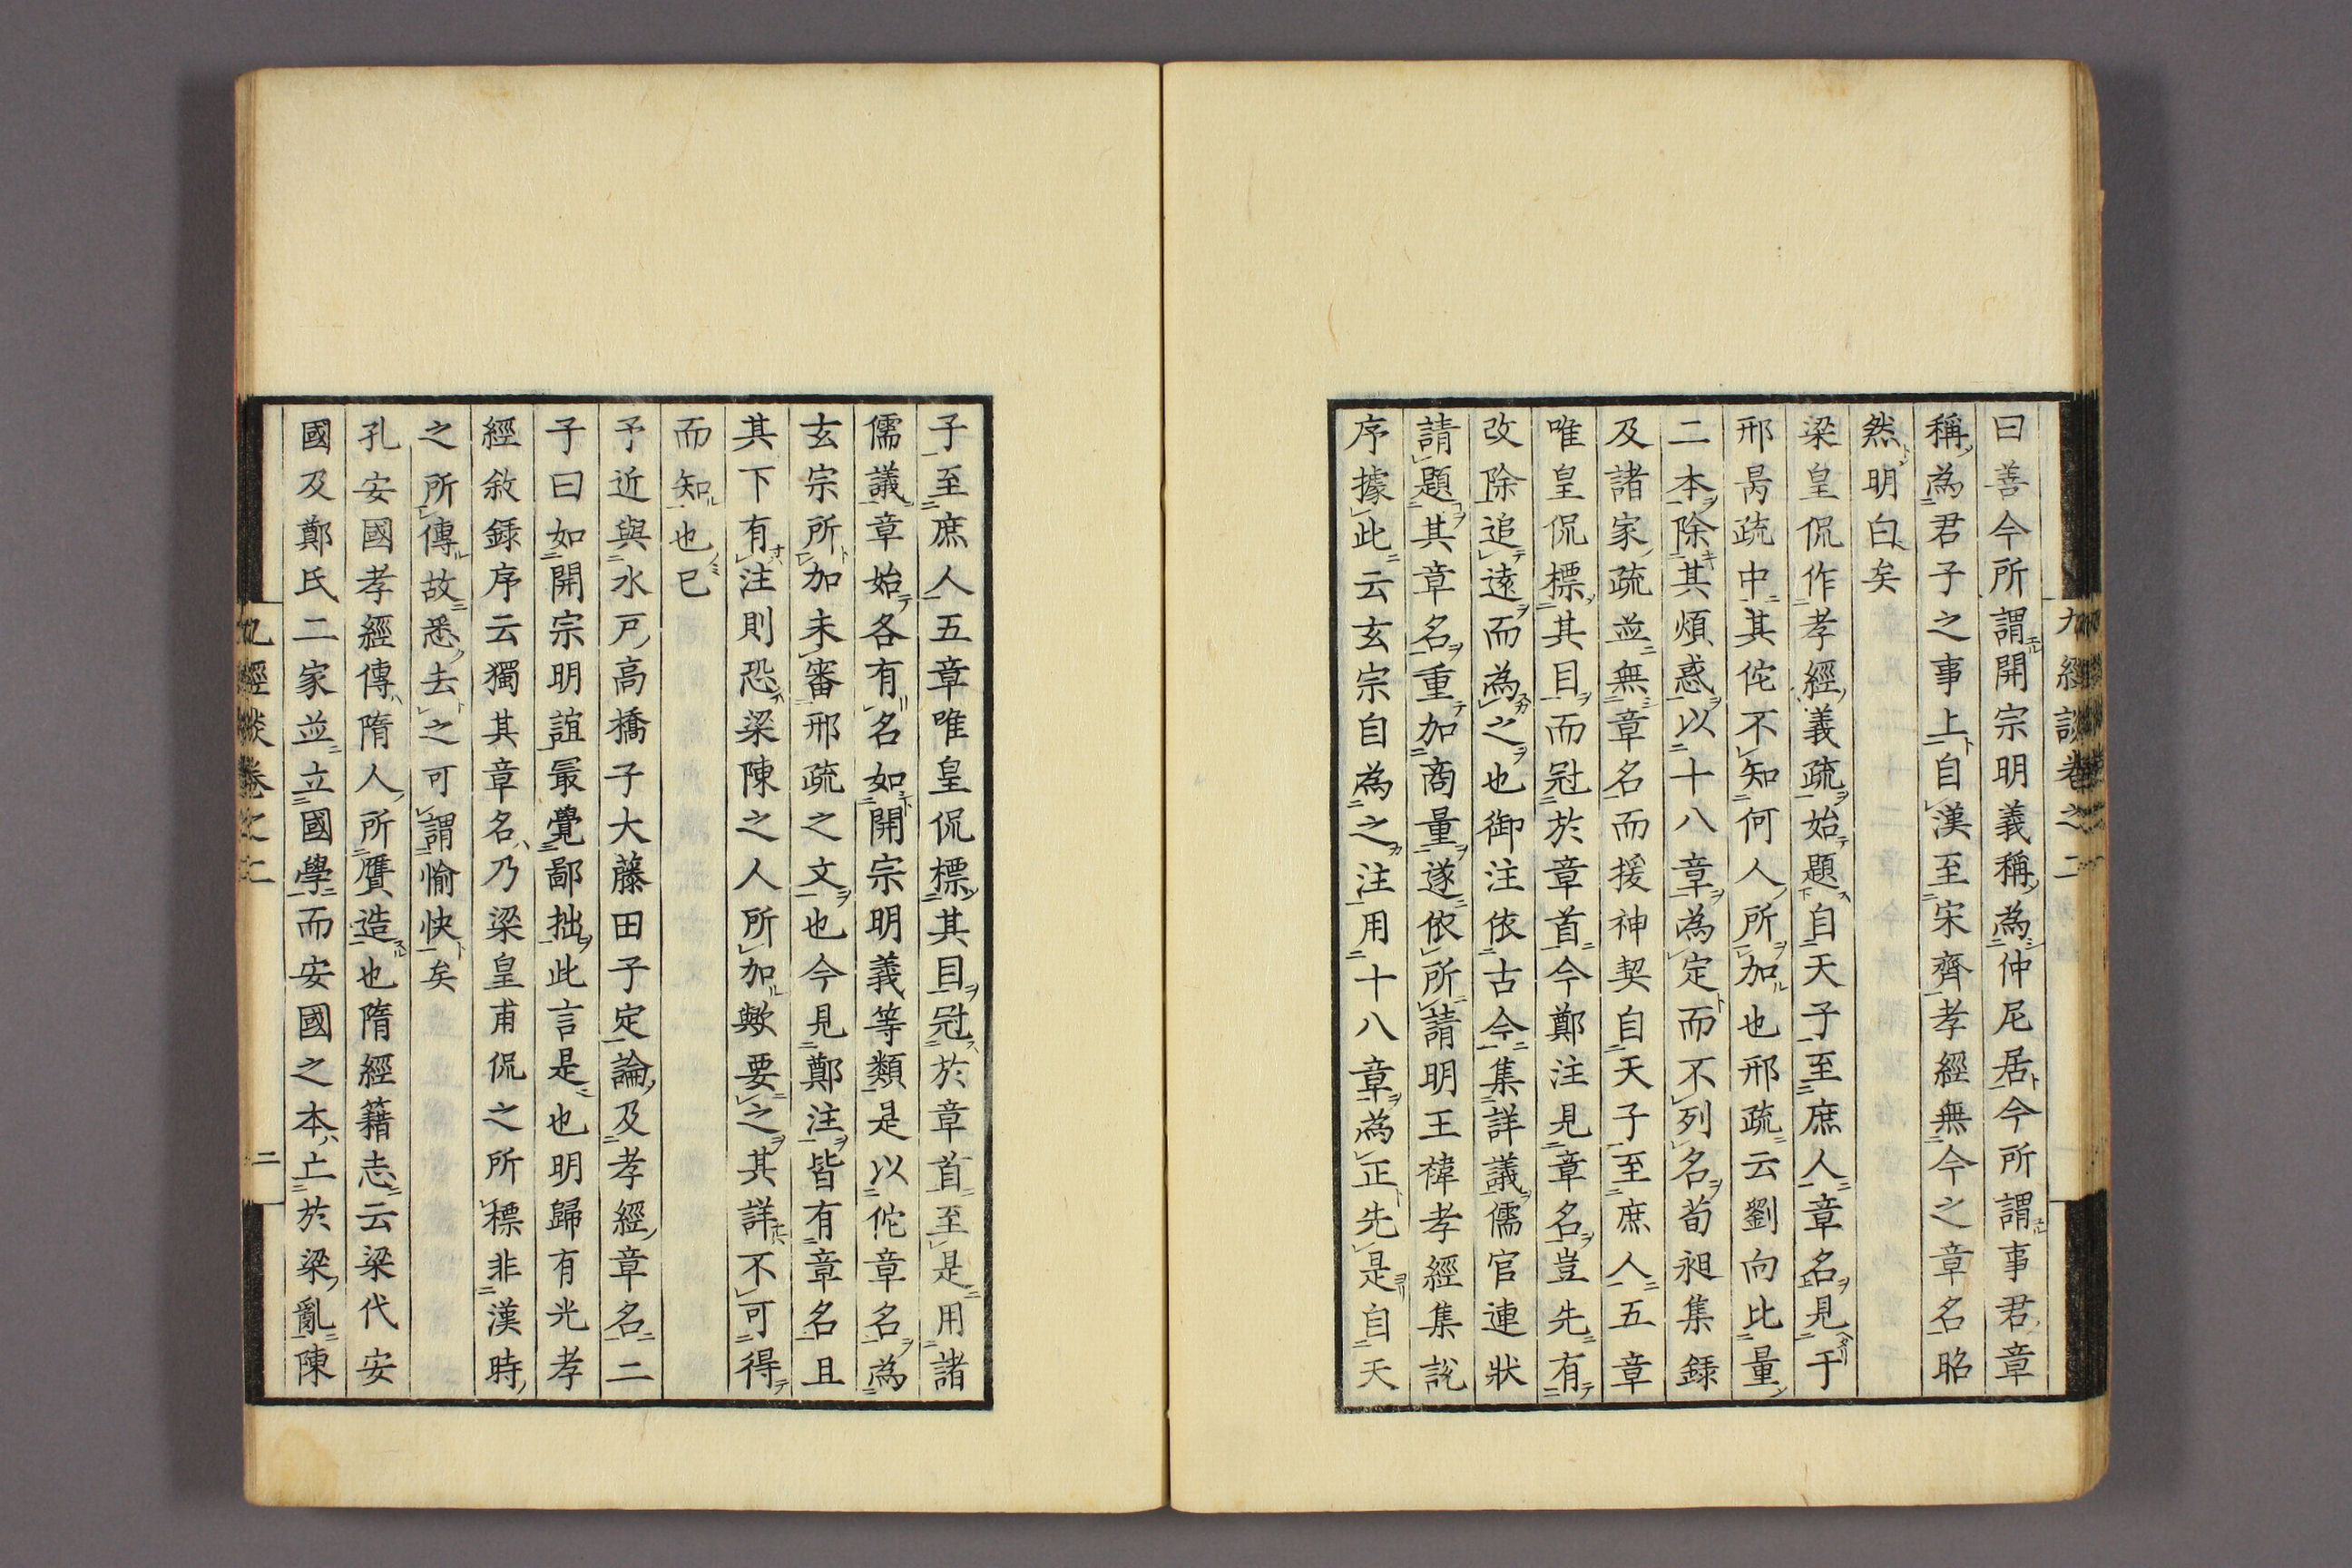 九經談卷之二
曰善今所謂開宗明義稱爲仲尼居今所謂事君章
稱爲君子之事上自漢至宋齊孝經無今之章名昭
然明白矣
梁皇侃作孝經義疏始題自天子至庶人章名見于
邢昺疏中其佗不知何人所加也邢疏云劉向比量
二本除其煩惑以十八章爲定而不列名荀昶集錄
及諸家疏並無章名而援神契自天子至庶人五章
唯皇侃標其目而冠於章首今鄭注見章名豈先有
改除追遠而爲之也御注依古今集詳議儒官連狀
請題其章名重加商量遂依所請明王禕孝經集說
序據此云玄宗自爲之注用十八章爲正先是自天
子至庶人五章唯皇侃標其目冠於章首至是用諸
儒議章始各有名如開宗明義等類是以佗章名爲
玄宗所加未審邢疏之文也今見鄭注皆有章名且
其下有注則恐梁陳之人所加歟要之其詳不可得
而知也已
予近與水戶高橋子大藤田子定論及孝經章名二
子曰如開宗明誼最覺鄙拙此言是也明歸有光孝
經敘錄序云獨其章名乃梁皇甫侃之所標非漢時
之所傳故悉去之可謂愉快矣
孔安國孝經傳隋人所贋造也隋經籍志云梁代安
國及鄭氏二家並立國學而安國之本亡於梁亂陳
九經談卷之二
二